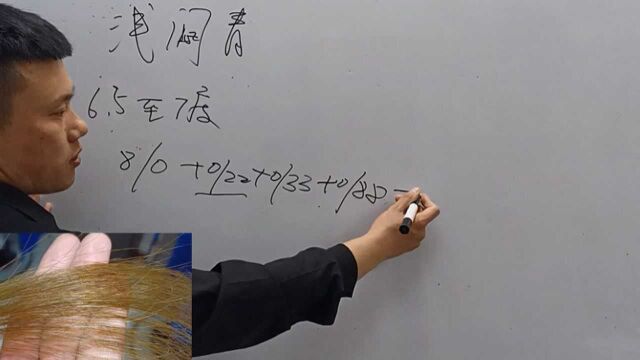 浅闷青
6.5至7度
8/0+0/22+0/33+0/88=